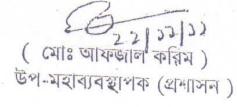 ২২/১২/১১
( মোঃ আফজাল করিম )
উপ-মহাব্যবস্থাপক (প্রশাসন )